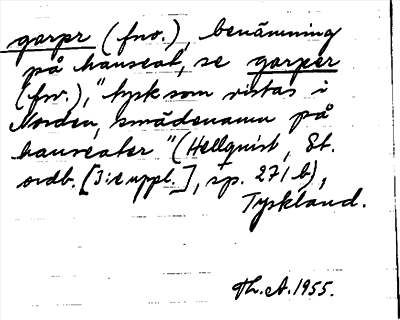 garpr (fno.), benämning
på hanseat, se garper
(fsv.), "tysk som vistas i
Norden, smädenamn på
hanseater" (Hellquist, Et.
ordb. [3:e uppl.], sp. 271 b),
Tyskland.
Th. A. 1955.